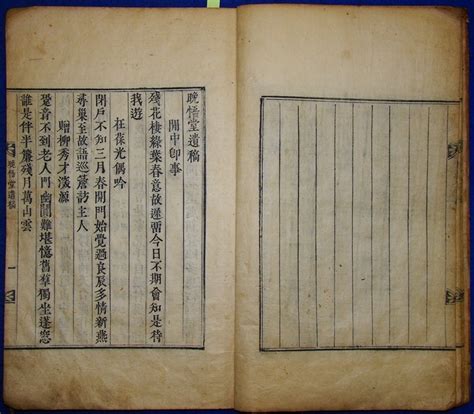 晩悟堂遺稿
閒中卽事
殘花棲綠葉春意故遲留今日不期會知是待
我遊
在葆光偶吟
閉戶不知三月春開門始覺過良辰多情新燕
尋巢至故語巡簷訪主人
贈柳秀才源
跫音不到老人門幽難堪憶舊羣獨坐蓬窓
誰是伴半簾殘月萬山雲
晩悟堂遺稿 一